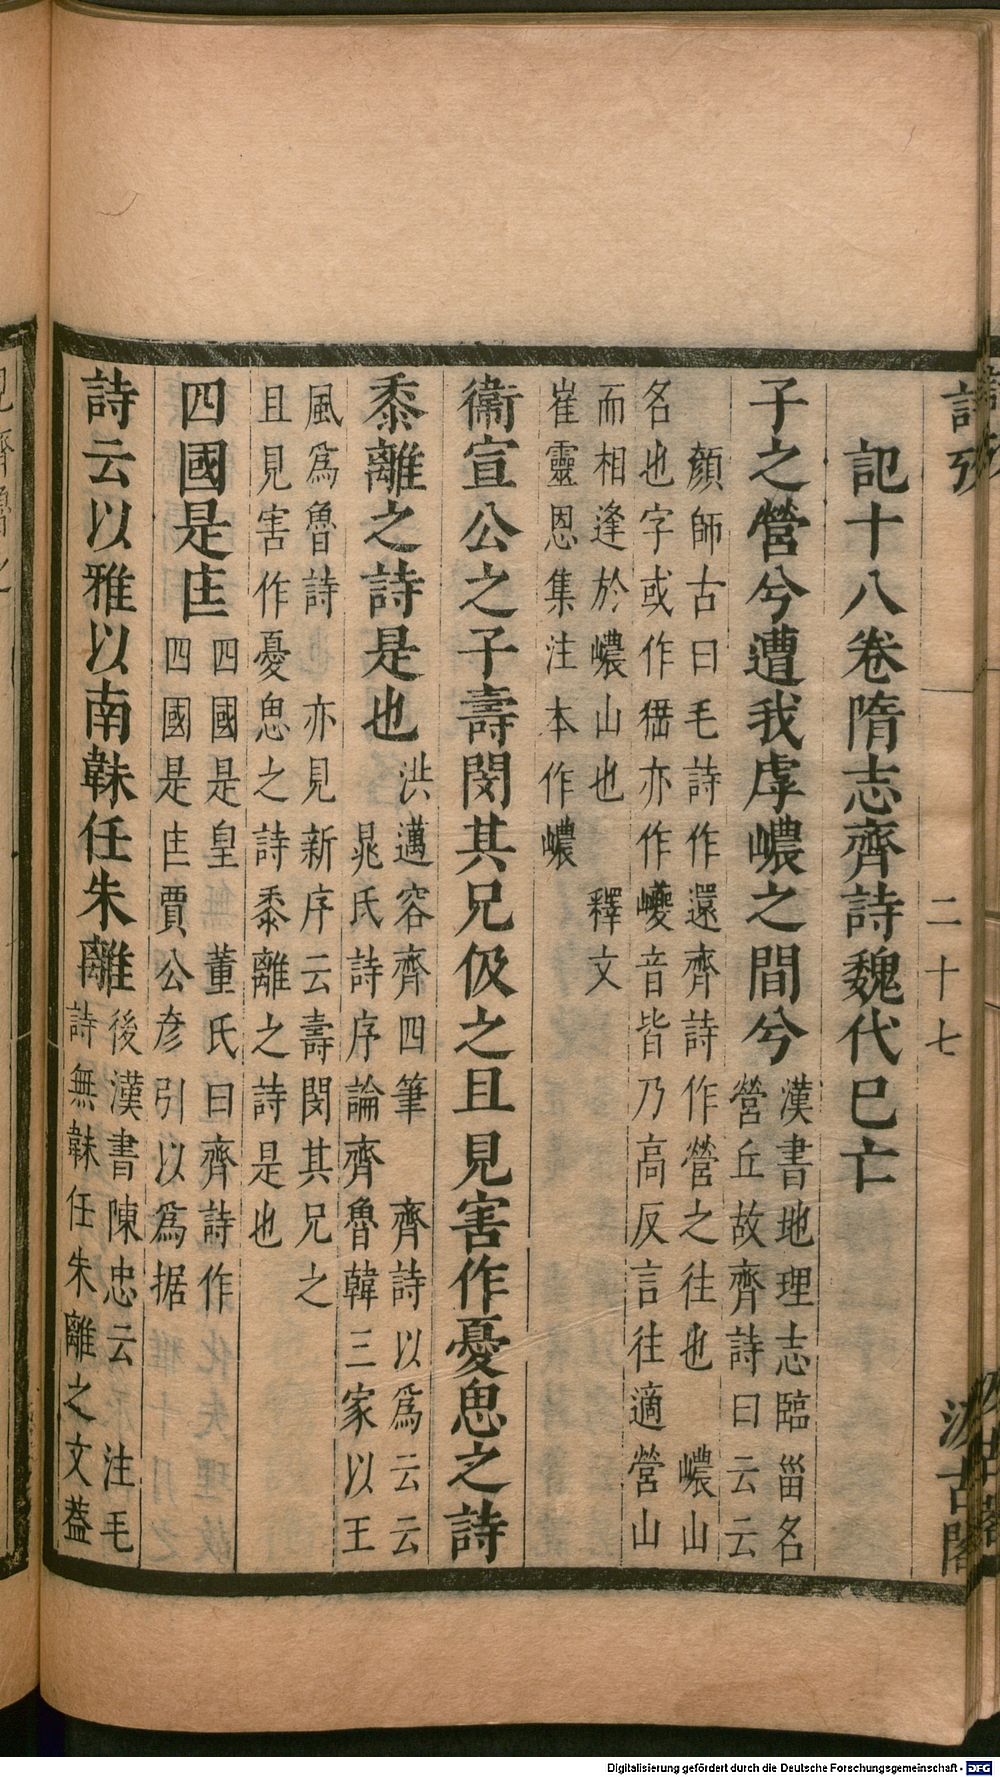 詩攷
二十七
汲古閣
記十八卷隋志齊詩魏代巳亡
子之營兮遭我虖巙之間兮
漢書地理志臨甾名
營丘故齊詩曰云云
顏師古曰毛詩作還齊詩作營之往也 巙山
名也字或作㺜亦作巎音皆乃高反言往適營山
而相逢於巙山也 釋文
崔靈恩集注本作巙
衞宣公之子壽閔其兄伋之且見害作憂思之詩
黍離之詩是也
洪邁容齊四筆 齊詩以爲云云
晁氏詩序論齊魯韓三家以王
風爲魯詩 亦見新序云壽閔其兄之
且見害作憂思之詩黍離之詩是也
四國是匡
四國是皇 董氏曰齊詩作
四國是匡賈公彦引以爲据
詩云以雅以南韎任朱離
後漢書陳忠云 注毛
詩無韎任朱離之文葢
Digitalisierung gefördert durch die Deutsche Forschungsgemeinschaft - DFG